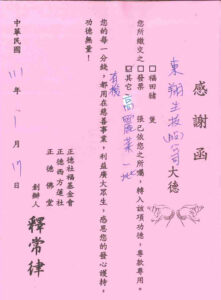 感謝函
東翔生技公司 大德
您所繳交之
□福田豬 隻
□發票 張
☑其它 有機高麗菜一批
已依您之所囑,轉入該項功德,專款專用。
您的每一分錢,都用在慈善事業,利益廣大眾生,感恩您的發心護持,
功德無量!
正德社福基金會
正德西方蓮社
正德佛堂
創辦人 釋常律
中華民國 111 年 1 月 17 日